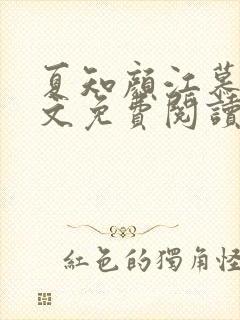 夏知顏江慕
文免費閱讀
紅色的獨角怪